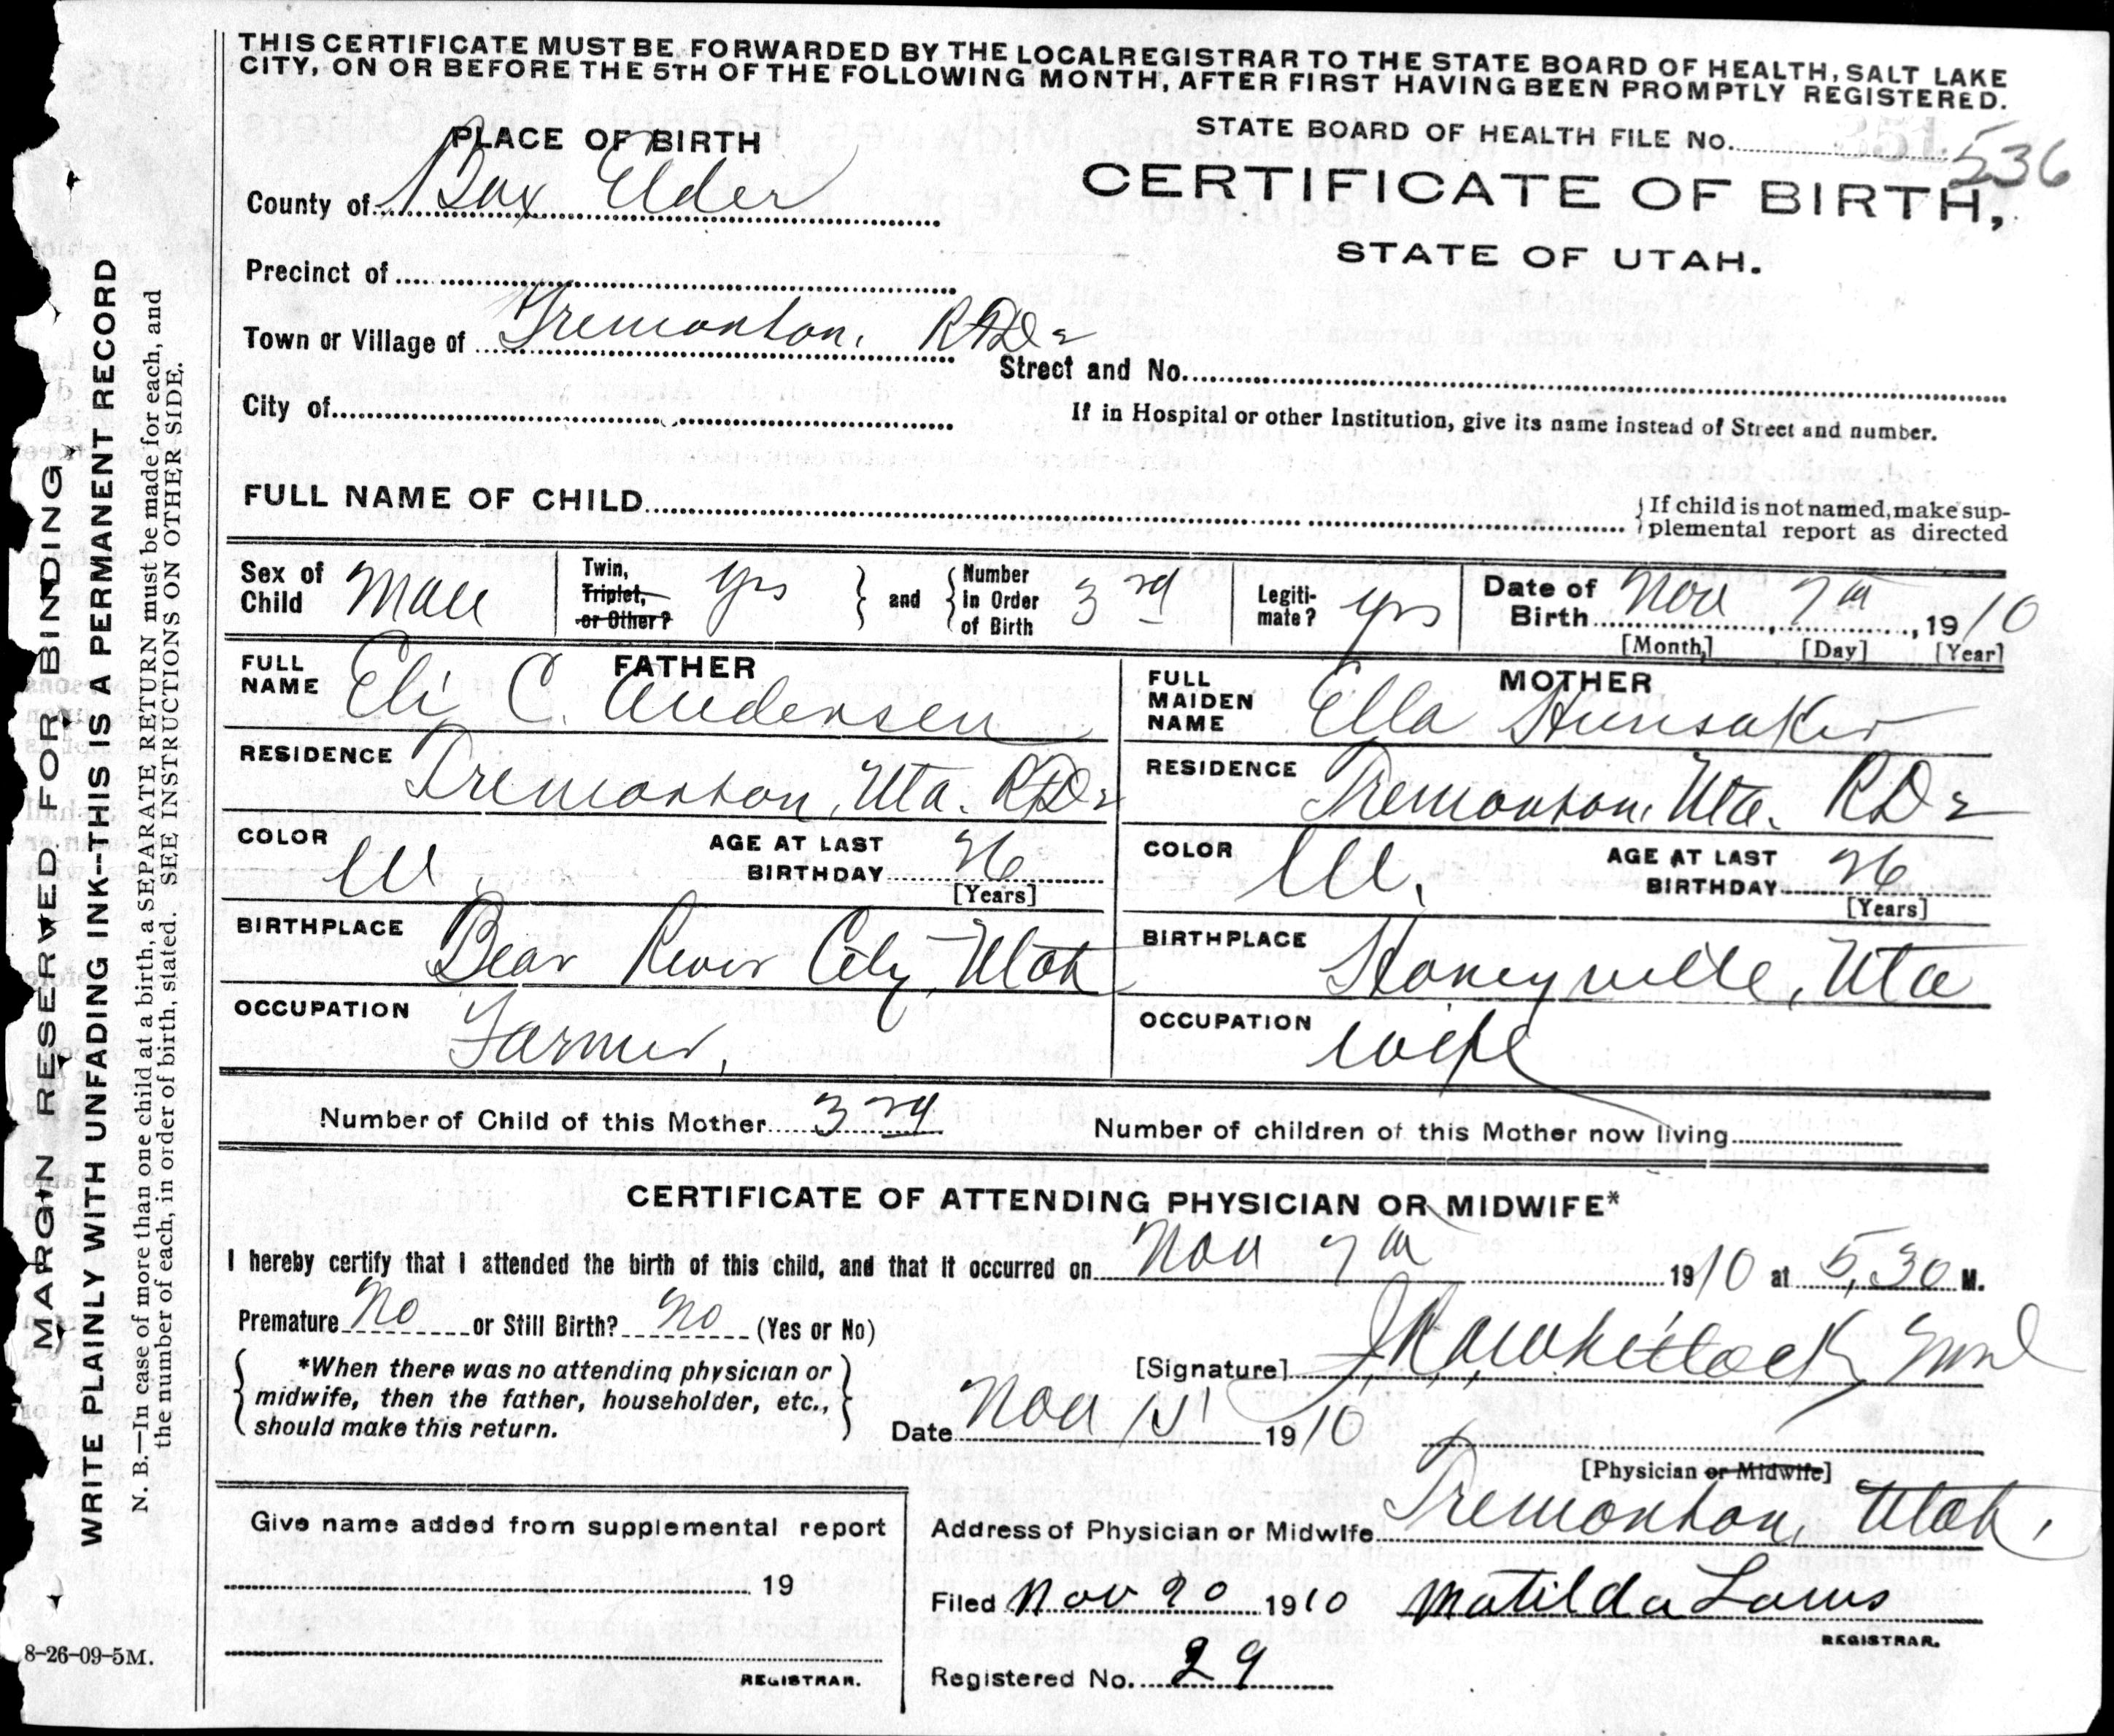 THIS CERTIFICATE MUST BE FORWARDED BY THE LOCAL REGISTRAR TO THE STATE BOARD OF HEALTH, SALT LAKE
CITY, ON OR BEFORE THE 5TH OF THE FOLLOWING MONTH, AFTER FIRST HAVING BEEN PROMPTLY REGISTERED.
STATE BOARD OF HEALTH FILE No. 536
PLACE OF BIRTH
CERTIFICATE OF BIRTH,
STATE OF UTAH.
County of Box Elder
Precinct of
Town or Village of Tremonton, RFD 2
Street and No.
City of
If in Hospital or other Institution, give its name instead of Street and number.
FULL NAME OF CHILD
If child is not named, make sup-
plemental report as directed
Sex of Child Male
Twin, Triplet, or Other? yes
and
Number in Order of Birth 3rd
Legiti-mate? yes
Date of Birth Nov 7th, 1910
[Month] [Day] [Year]
FATHER
FULL NAME Eli C. Andersen
MOTHER
FULL MAIDEN NAME Ella Hunsaker
RESIDENCE Tremonton, Uta. RFD 2
RESIDENCE Tremonton, Uta. RD 2
COLOR W.
AGE AT LAST BIRTHDAY 26
[Years]
COLOR W.
AGE AT LAST BIRTHDAY 26
[Years]
BIRTHPLACE Bear River City, Utah
BIRTHPLACE Honeyville, Uta
OCCUPATION Farmer,
OCCUPATION wife
Number of Child of this Mother 3rd
Number of children of this Mother now living
CERTIFICATE OF ATTENDING PHYSICIAN OR MIDWIFE*
I hereby certify that I attended the birth of this child, and that it occurred on Nov 7th 1910 at 5,30 M.
Premature No or Still Birth? No (Yes or No)
*When there was no attending physician or
midwife, then the father, householder, etc.,
should make this return.
[Signature] Whitlock
Date Nov 1910
[Physician or Midwife]
Address of Physician or Midwife Tremonton, Utah.
Give name added from supplemental report
19
REGISTRAR.
Filed Nov 20 1910 Matilda
REGISTRAR.
Registered No. 29
MARGIN RESERVED FOR BINDING
WRITE PLAINLY WITH UNFADING INK--THIS IS A PERMANENT RECORD
N. B.—In case of more than one child at a birth, a SEPARATE RETURN must be made for each, and
the number of each, in order of birth, stated. SEE INSTRUCTIONS ON OTHER SIDE.
8-26-09-5M.